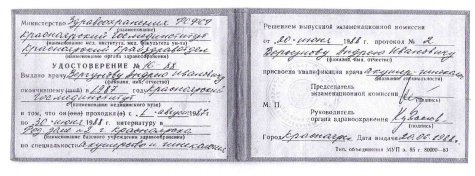 Министерство Здравоохранения РСФСР
(наименование)
Красноярский Госмединститут
(наименование мед. института, мед. факультета ун-та)
Красноярский Крайздравотдел
(наименование органа здравоохранения)
УДОСТОВЕРЕНИЕ № 10-88
Выдано врачу Андрею Ивановичу
(фамилия, имя, отчество)
окончившему (ей) в 1987 Красноярский
Госмединститут
(наименование медицинского вуза)
в том, что он(а) проходил(а) с 1 августа 87г.
по 30 июня 1988 г. интернатуру в
г. Красноярска
(наименование базового учреждения здравоохранения)
по специальности акушерство и гинекология
Решением выпускной экзаменационной комиссии
от 20 июня 1988 г. протокол № 2
Андрею Ивановичу
(фамилия, имя, отчество)
присвоена квалификация врача акушер-гинеколог
Председатель
экзаменационной комиссии
(подпись)
М. П.
Руководитель
органа здравоохранения
(подпись)
Город Красноярск Дата выдачи 20.06.1988 г.
Тип. объединения МУП з. 85 г. 80000—83